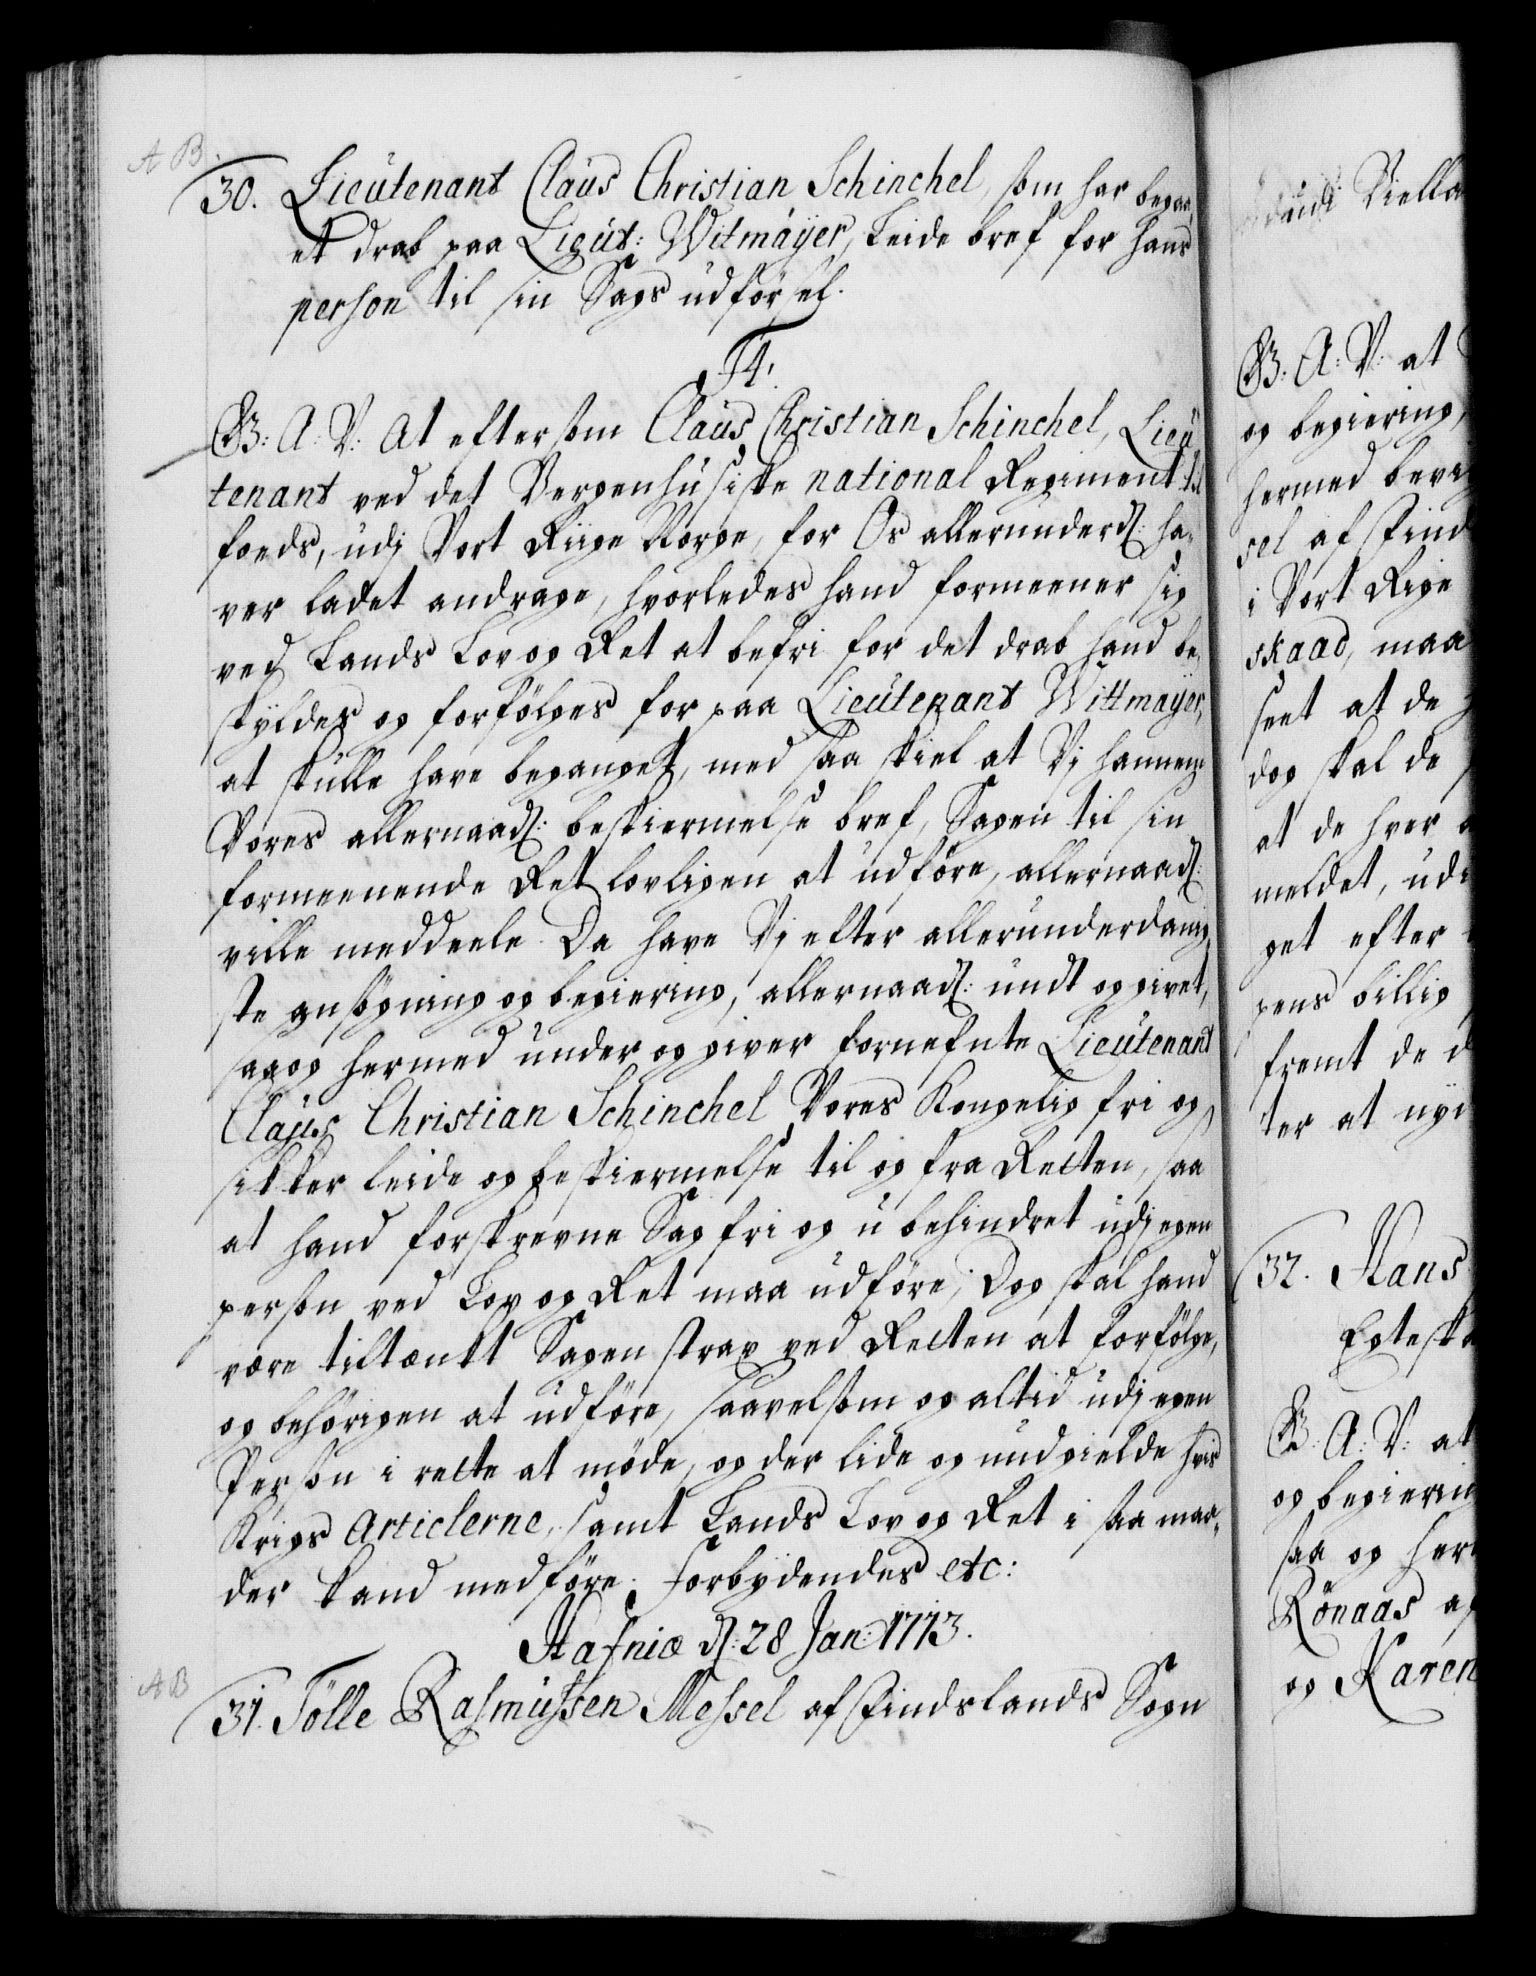 A B
30. Lieutenant Claus Christian Schinchel, som har begaa,
et drab paa Lieut: Witmayer, Leide bref for hans
person til sin Sags udförsel.
F4.
G: A: V: At eftersom Claus Christian Schinchel, Lieu
tenant ved det Bergenhusiske national Regiment til
foeds, udj Vort Riige Norge, for Os allerunderd: ha,
ver ladet andrage, hvorledes hand formeener sig
ved Lands Lov og Ret at befri for det drab hand be,
skyldes og forfölges for paa Lieutenant Wittmayer,
at skulle have begaaget, med saa skiel at Vj hannem
Vores allernaad: beskiermelse bref, Sagen til sin
formeenende Ret lovligen at udföre, allernaad:
ville meddeele. Da have Vj efter allerunderdanig,
ste ansögning og begiering, allernaad: undt og givet,
saa og hermed under og giver fornefnte Lieutenant
Claus Christian Schinchel Vores Kongelig fri og
sikker leide og beskiermelse til og fra Retten, saa
at hand forskrevne Sag fri og u behindret udj egen
person ved Lov og Ret maa udföre; Dog skal hand
være tiltænkt Sagen strax ved Retten at forfölge,
og behörigen at udföre, saavelsom og altid udj egen
Person i rette at möde, og der lide og undgielde hvis
Krigs Articlerne, samt Lands Lov og Ret i saa maa,
der kand medföre. Forbydendes etc:
Hafniæ d: 28 Jan: 1713.
A B
31. Tölle Rasmussen Messel af Findslands Sogn
udi Riella
G: A: V: at
og begiering,
hermed bevi
sel af Find
i Vort Rige
skaad, maa
seet at de
dog skal de
at de hver
meldet, udi
get efter
gens billig
fremt de d
ter at nyd
32. Hans
Egtesk
G: A: V: at
og begierin
saa og her
Rönaas af
og Karen